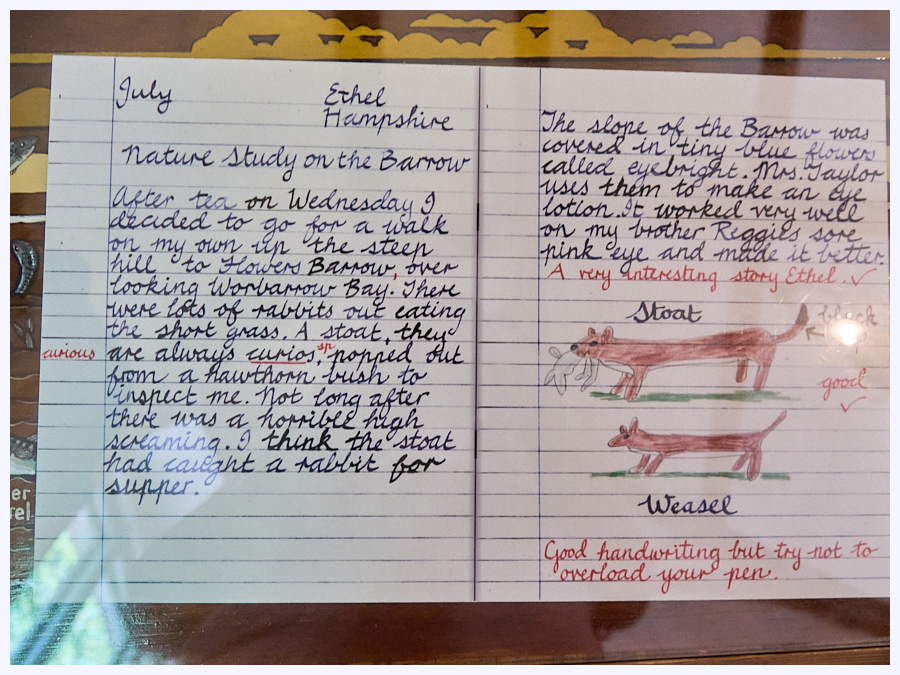 July
Ethel
Hampshire
Nature Study on the Barrow
After tea on Wednesday I
decided to go for a walk
on my own up the steep
hill to Flowers Barrow, over
looking Worbarrow Bay. There
were lots of rabbits out eating
the short grass. A stoat, they
curious
are always curios, sp popped out
from a hawthorn bush to
inspect me. Not long after
there was a horrible high
screaming. I think the stoat
had caught a rabbit for
supper.
The slope of the Barrow was
covered in tiny blue flowers
called eyebright. Mrs. Taylor
uses them to make an eye
lotion. It worked very well
on my brother Reggies sore
pink eye and made it better.
A very interesting story Ethel. ✓
Stoat
black
good
✓
Weasel
Good handwriting but try not to
overload your pen.
er
rel